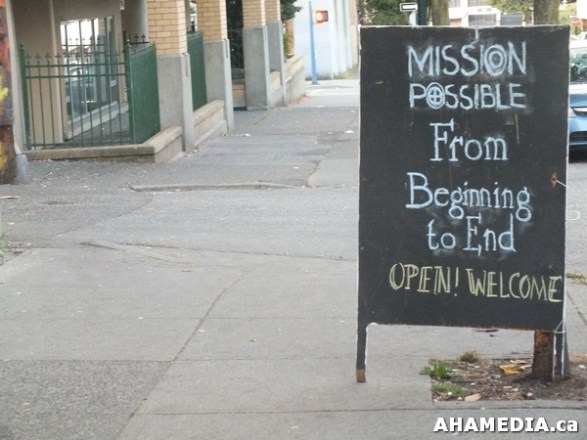 MISSION
POSSIBLE
From
Beginning
to End
OPEN! WELCOME
AHAMEDIA.ca